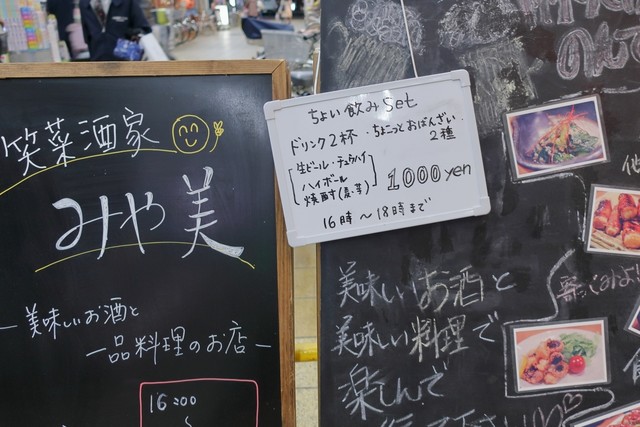 笑菜酒家
みや美
—美味しいお酒と
一品料理のお店—
16:00
〜
ちょい飲みset
ドリンク2杯・ちょこっとおばんざい
2種
生ビール・チュウハイ
ハイボール
焼酎(麦・芋)
1000yen
16時〜18時まで
美味しいお酒と
美味しい料理で
楽しんで